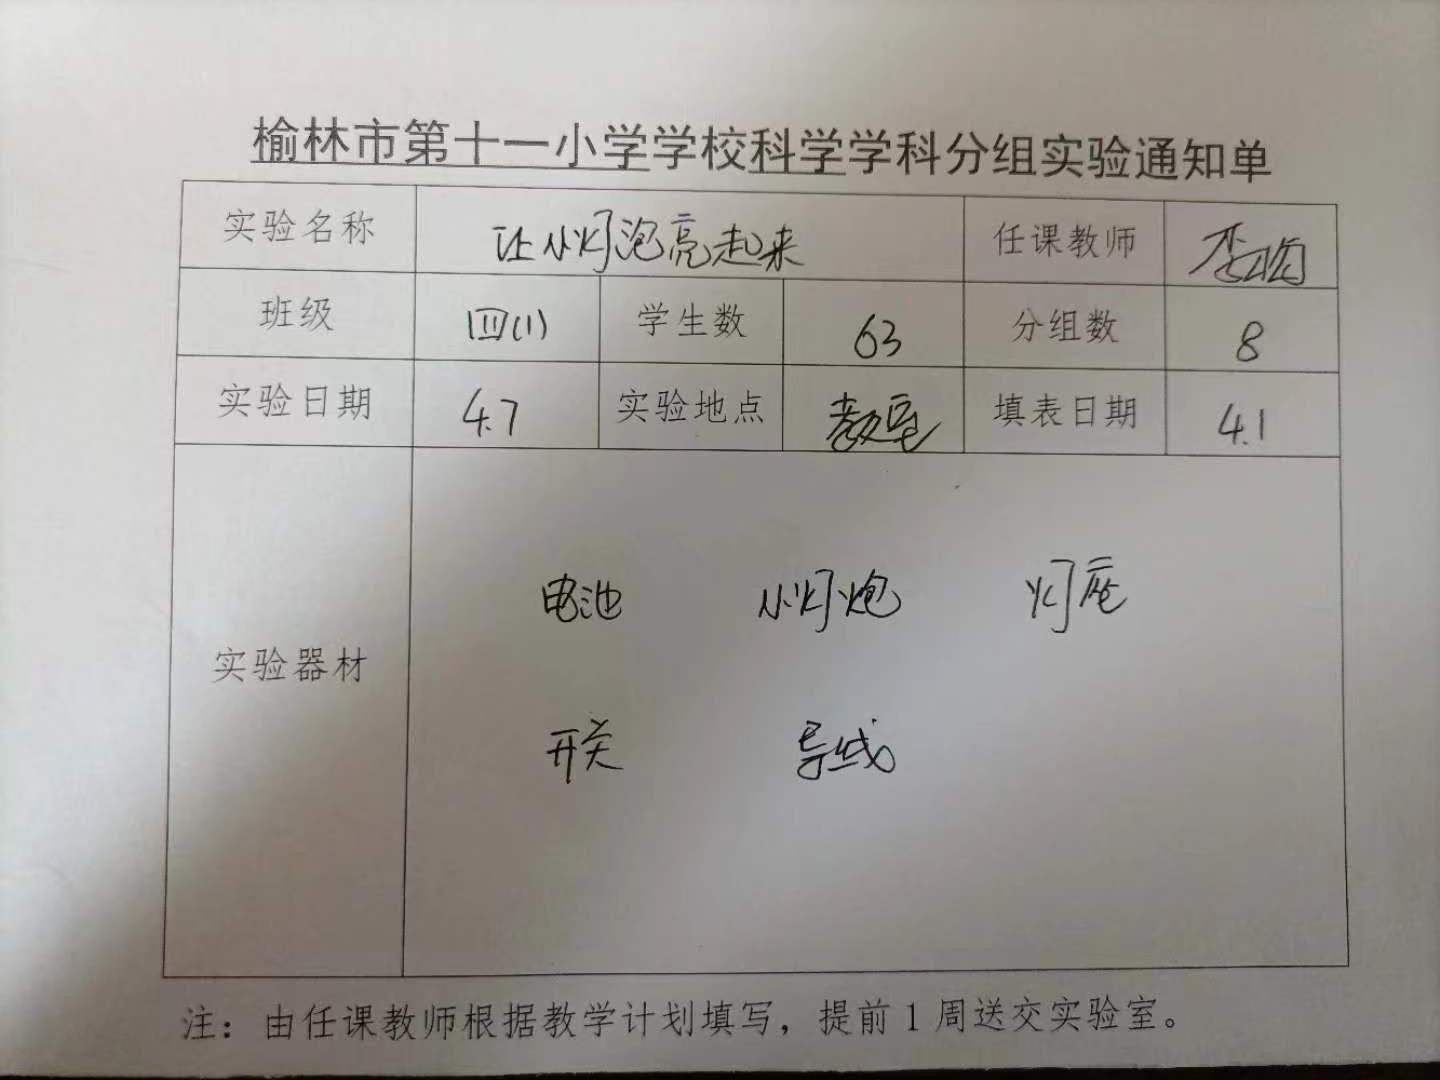 榆林市第十一小学学校科学学科分组实验通知单
实验名称 让小灯泡亮起来 任课教师 李
班级 四(1) 学生数 63 分组数 8
实验日期 4.7 实验地点 教室 填表日期 4.1
实验器材
电池 小灯炮 灯座
开关 导线
注：由任课教师根据教学计划填写，提前1周送交实验室。